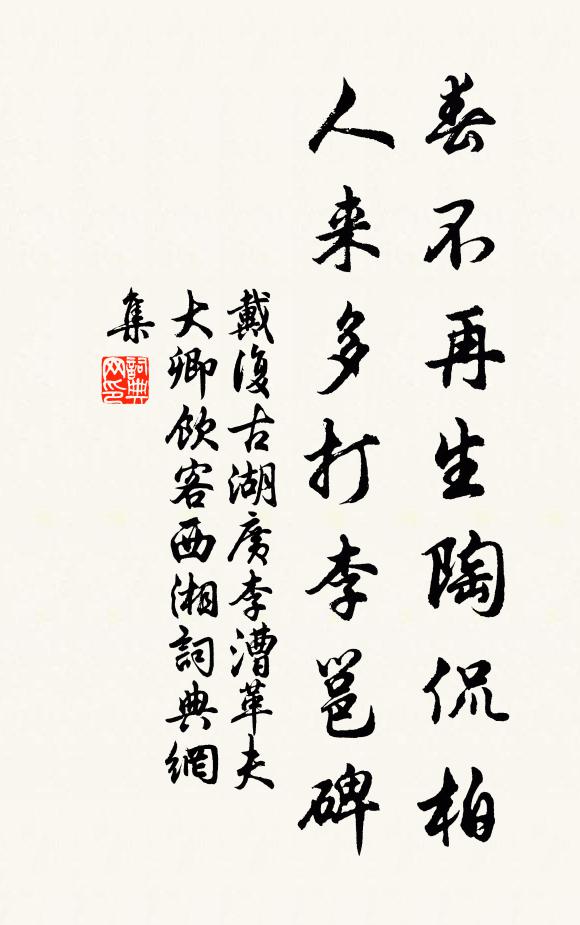 春不再生陶侃柏
人来多打李邕碑
戴復古湖廣李漕革夫
大卿飲客西湘詞典網
集
詞典
网印